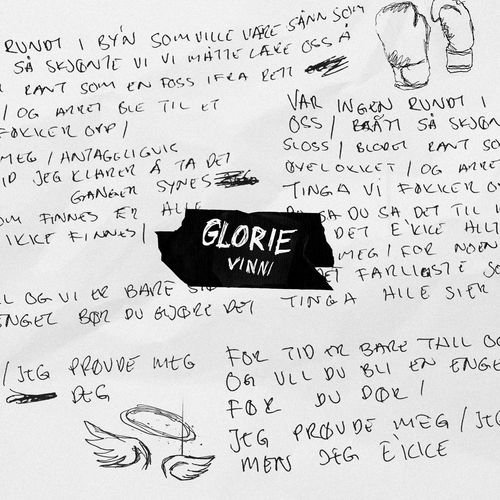 RUNDT I BY'N SOM VILLE VÆRE SÅNN SOM
SÅ SKJØNTE VI VI MÅTTE LÆRE OSS Å
RANT SOM EN FOSS IFRA RETT
/ OG ARRET BLE TIL ET
FØKKER OPP /
MEG / ANTAGGLIGVIS
JEG KLARER Å TA DET
GANGER SYNES
OM FINNES ER ALLE
IKKE FINNES /
OG VI ER BARE
ENGEL BØR DU GJØRE DET
/ JEG PRØVDE MEG
DEG
VAR INGEN RUNDT I
OSS / BRÅTT SÅ SKJØN
SLOSS / BLODET RANT SOM
ØYELOKKET / OG ARRE
TINGA VI FØKKER O
SA DU SA DET TIL
DET E'KKE ALLT
MEG / FOR NOEN
DET FARLIGSTE SO
TINGA ALLE SIER
FOR TID ER BARE TALL OG
OG VIL DU BLI EN ENGE
FØR DU DØR /
JEG PRØVDE MEG / JEG
MEN JEG E'KKE
GLORIE
VINNI